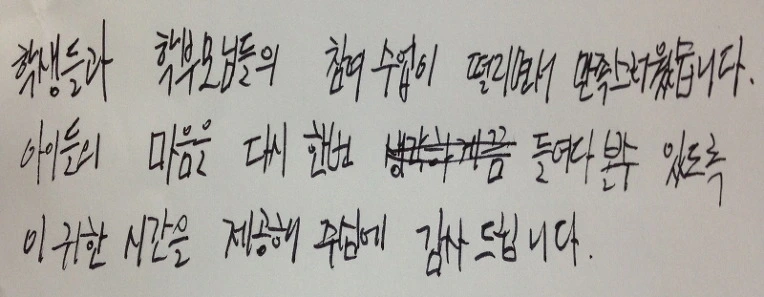 학생들과 학부모님들의 참여 수업이 떨리면서 만족스러웠습니다.
아이들의 마음을 다시 한번 생각하게끔 들여다 볼수 있도록
이 귀한 시간을 제공해 주심에 감사 드립니다.